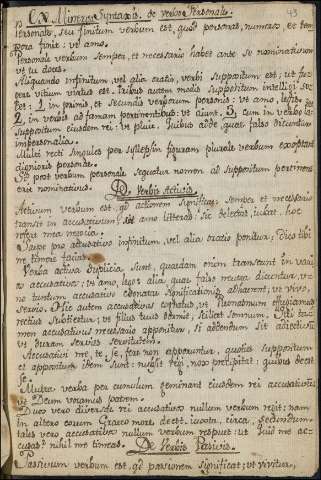 43
CN. Minerva Syntaxis. de verbo Personali.
Personale, seu finitum verbum est, quod personas, numeros, et tem
pora finit: ut amo.
Personale verbum semper, et necessario habet ante se nominativum
ut tu doces.
Aliquando infinitum, vel alia oratio, verbi suppositum est; ut fu
gere vitium virtus est. Tribus autem modis suppositum intelligi so
let: 1, in primis, et secundis verborum personis: ut amo, legis.
2, in verbis ad famam pertinentibus: ut aiunt. 3, cum in verbo la
suppositum eiusdem rei: ut pluit. Quibus adde quae falso dicuntur
impersonalia.
Multi recti singuli per syllepsin figuram plurale verbum exoptant
dignioris personae.
Si post verbum personale sequatur nomen ad suppositum pertinens
erit nominativus.
De Verbis Activis.
Activum verbum est, quod actionem significat, semper et necessario
transit in accusativum; ut amo libros. Sic delectat, iuvat, hoc
mea
Saepe pro accusativo infinitum, vel alia oratio ponitur; Dico tibi
ne timeas
Verba activa duplicia sunt, quaedam enim transeunt in varios
accusativos: ut amo, lego: alia quae falso neutra dicuntur, una
tantum accusativo cognatae significationis adhaerent, ut vivo,
servio. Hic autem accusativus cognatus, ut Pleonasmum effugiamus
rectius subticetur: ut filius tuus dormit, scilicet somnum.
men accusativus necessario apponitur, si addendum sit adiectivum
ut duram servis servitutem.
Accusativi me, te, se, fere non apponuntur, quoties suppositum
et appositum idem sunt: nubit, pro, nox praecipitat: quibus deest
se.
Multa verba per cumulum geminant eiusdem rei accusativum
ut Deum voramus patrem.
Duo vero diversae rei accusativos nullum verbum regit: nam
in altero eorum Graeco more deest, iuxta, circa, secundum.
tales vero accusativos nullum verbum respuit: ut Quid me ac
cusas? nihil me timeas.
De Verbis Passivis.
Passivum verbum est, quod passionem significat; ut vivitur,